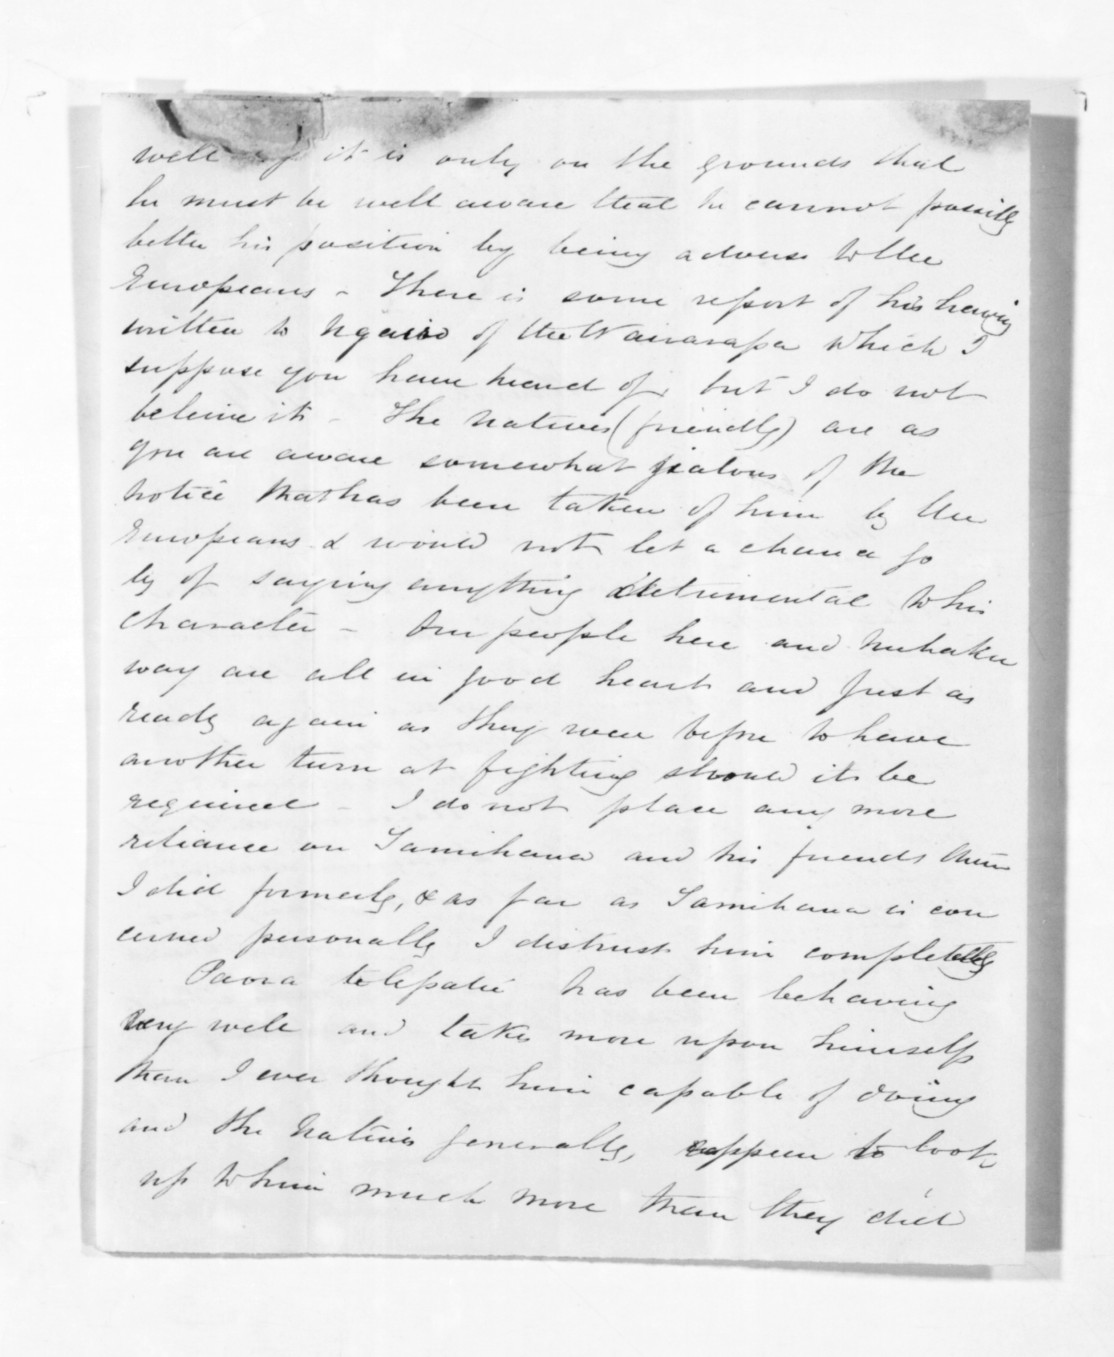 well it is only on the grounds that
he must be well aware that he cannot possibly
better his position by being adverse to the
Europeans - There is some report of his having
written to Ngairo of the Wairarapa which I
suppose you have heard of, but I do not
beleive it - The natives (friendly) are as
you are aware somewhat jealous of the
notice that has been taken of him by the
Europeans & would not let a chance go
by of saying anything detrimental to his
character - Our people here and Nuhaka
way are all in good heart and just as
ready again as they were before to have
another turn at fighting should it be
required - I do not place any more
reliance on Tamihana and his friends than
I did formerly, & as far as Tamihana is con
cerned personally I distrust him completely
Paora telepatu has been behaving
very well and takes more upon himself
than I ever thought him capable of doing
and the Natives generally, appear to look
up to him much more than they did